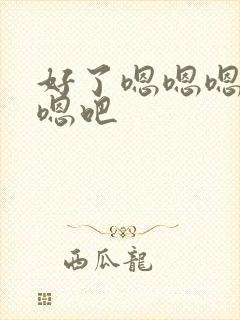 好了嗯嗯嗯
嗯吧
西瓜龍